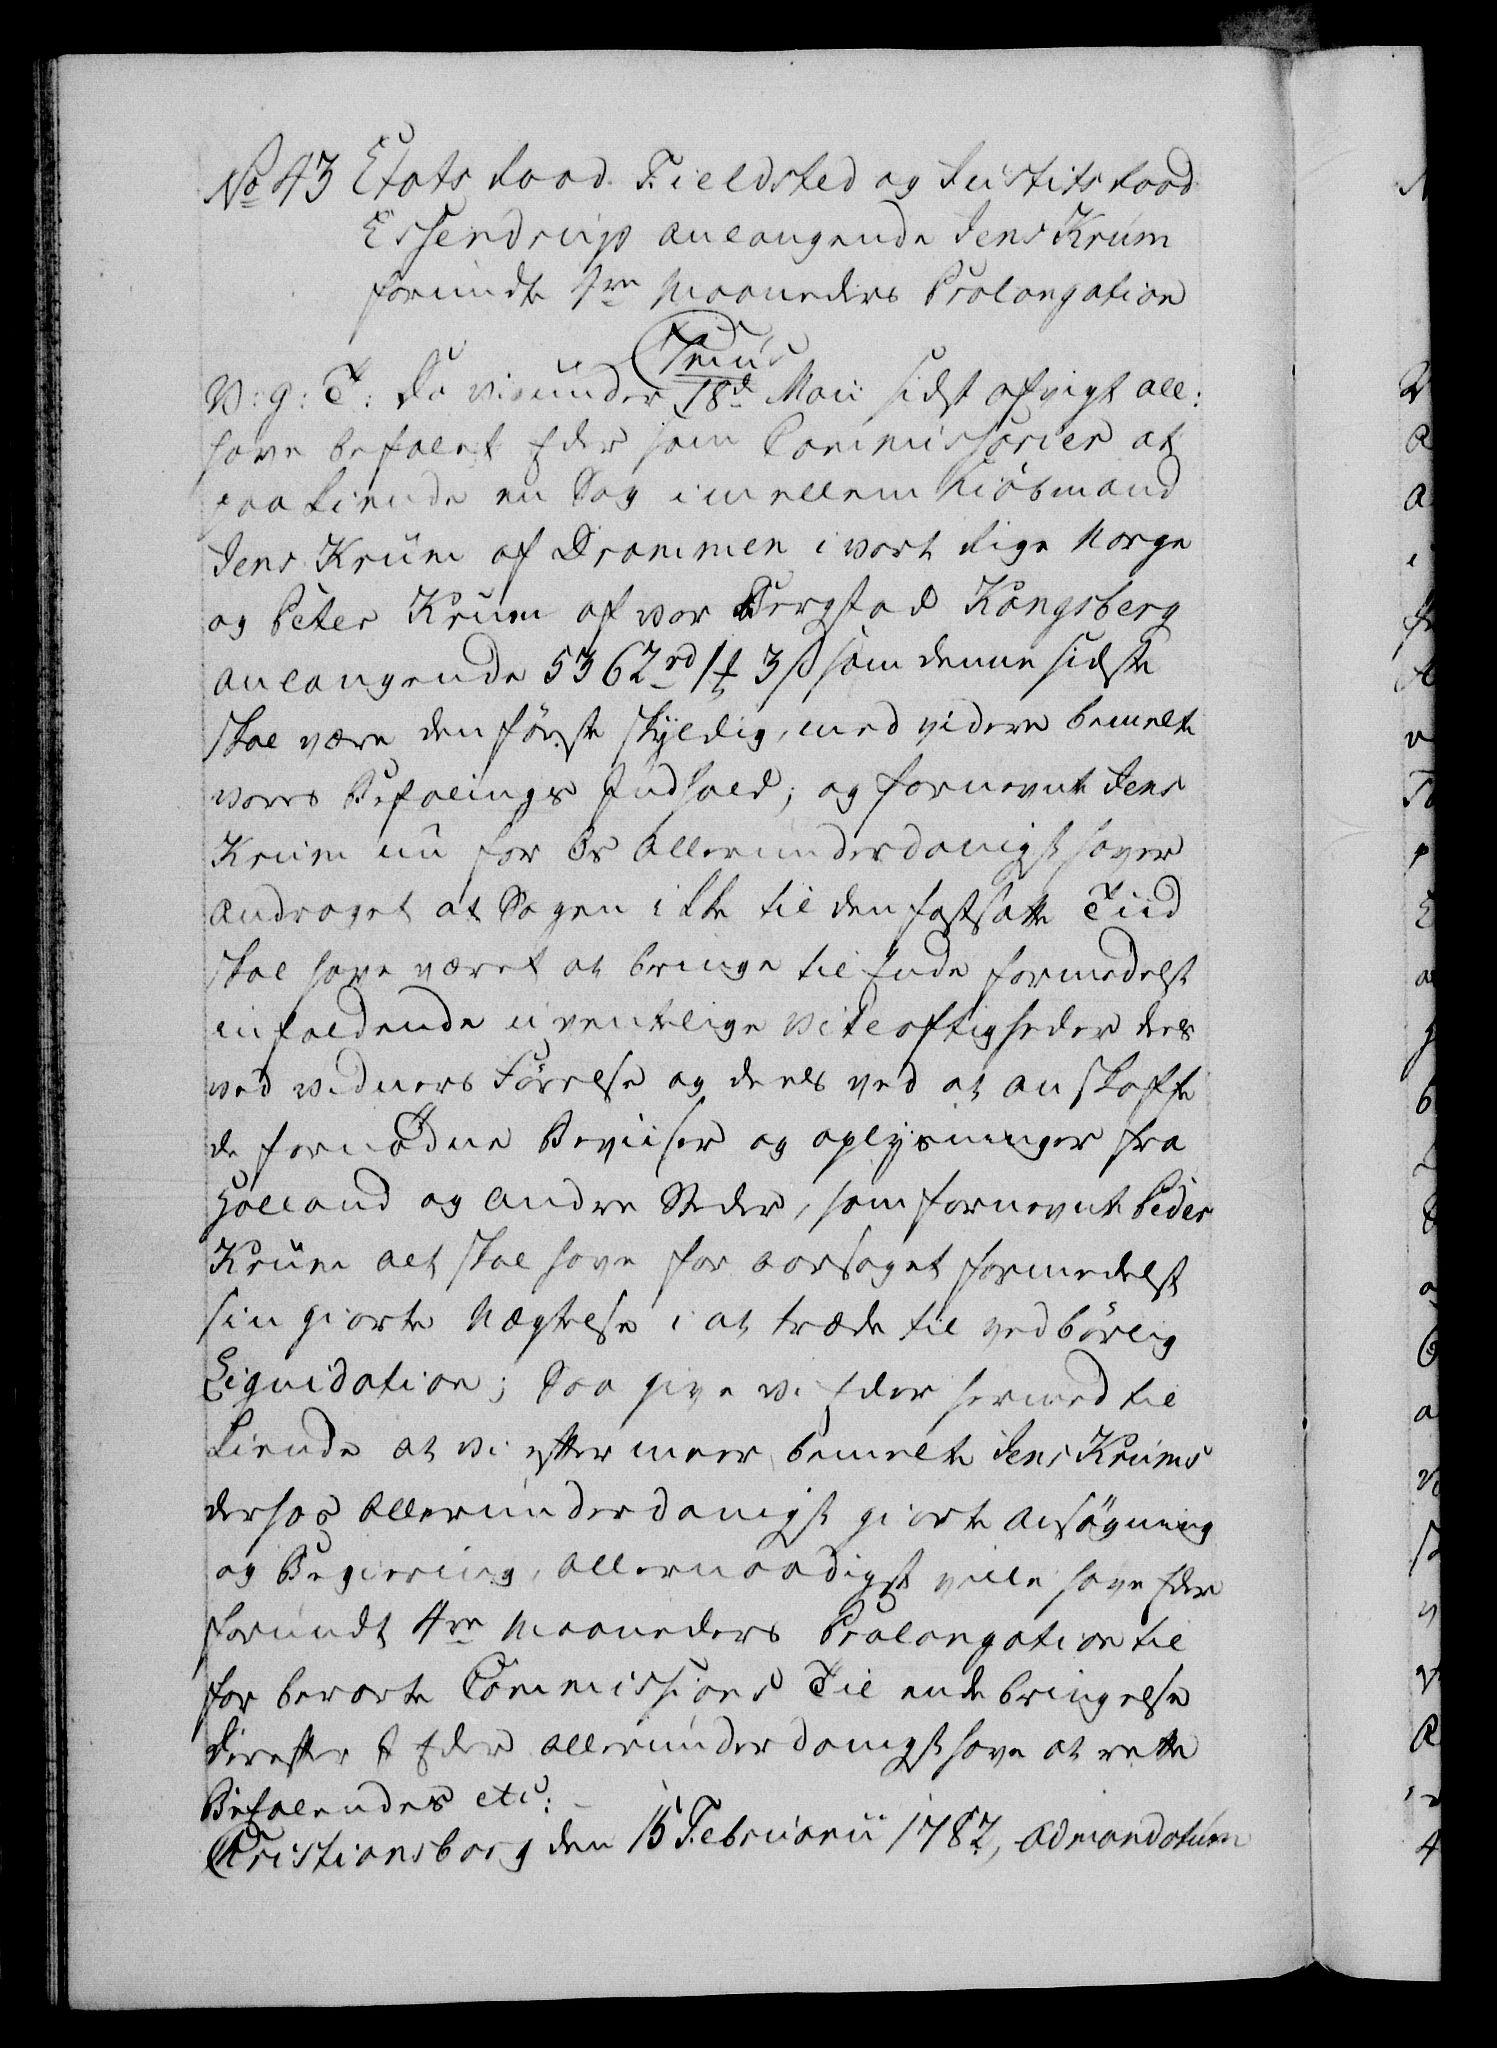 No 43 Etats Raad Fieldsted og Justits Raad
Essendrup anlangende Jens Krum
forundte 4re Maaneders Prolongation
V: g: T: Da vi under 18d Maii sidst afvigt all:
have befalet Eder som Commissarier at
paakiende en Sag imellem Kiöbmand
Jens Krum af Drammen i vort Rige Norge
og Peter Krum af vor Bergstad Kongsberg
anlangende 5362 rd 1 ʒ 3 ß som denne sidste
skal være den förste skyldig, med videre bemelte
vores Befalings Indhold; og fornevnte Jens
Krum nu for Os allerunderdanigst haver
andraget at Sagen ikke til den fastsatte Tiid
skal have været at bringe til Ende formedelst
infaldende uventelige Vitløftigheder deels
ved Vidners Förelse og deels ved at anskaffe
de fornödne Beviiser og oplysninger fra
Holland og andre Steder, som fornevnte Peder
Krum alt skal have foraarsaget formedelst
sin giorte Nægtelse i at træde til vedbörlig
Liquidation; Saa give vi Eder hermed til
kiende at vi efter meer bemelte Jens Krums
derhos allerunderdanigst giorte Ansögning
og Begiering, allernaadigst ville have Eder
forundt 4re Maaneders Prolongation til
forberørte Commissions Til ende bringelse
Derefter I Eder allerunderdanigst have at rette
Befalendes etc:
Christiansborg den 15 Februarii 1782, ad mandatum